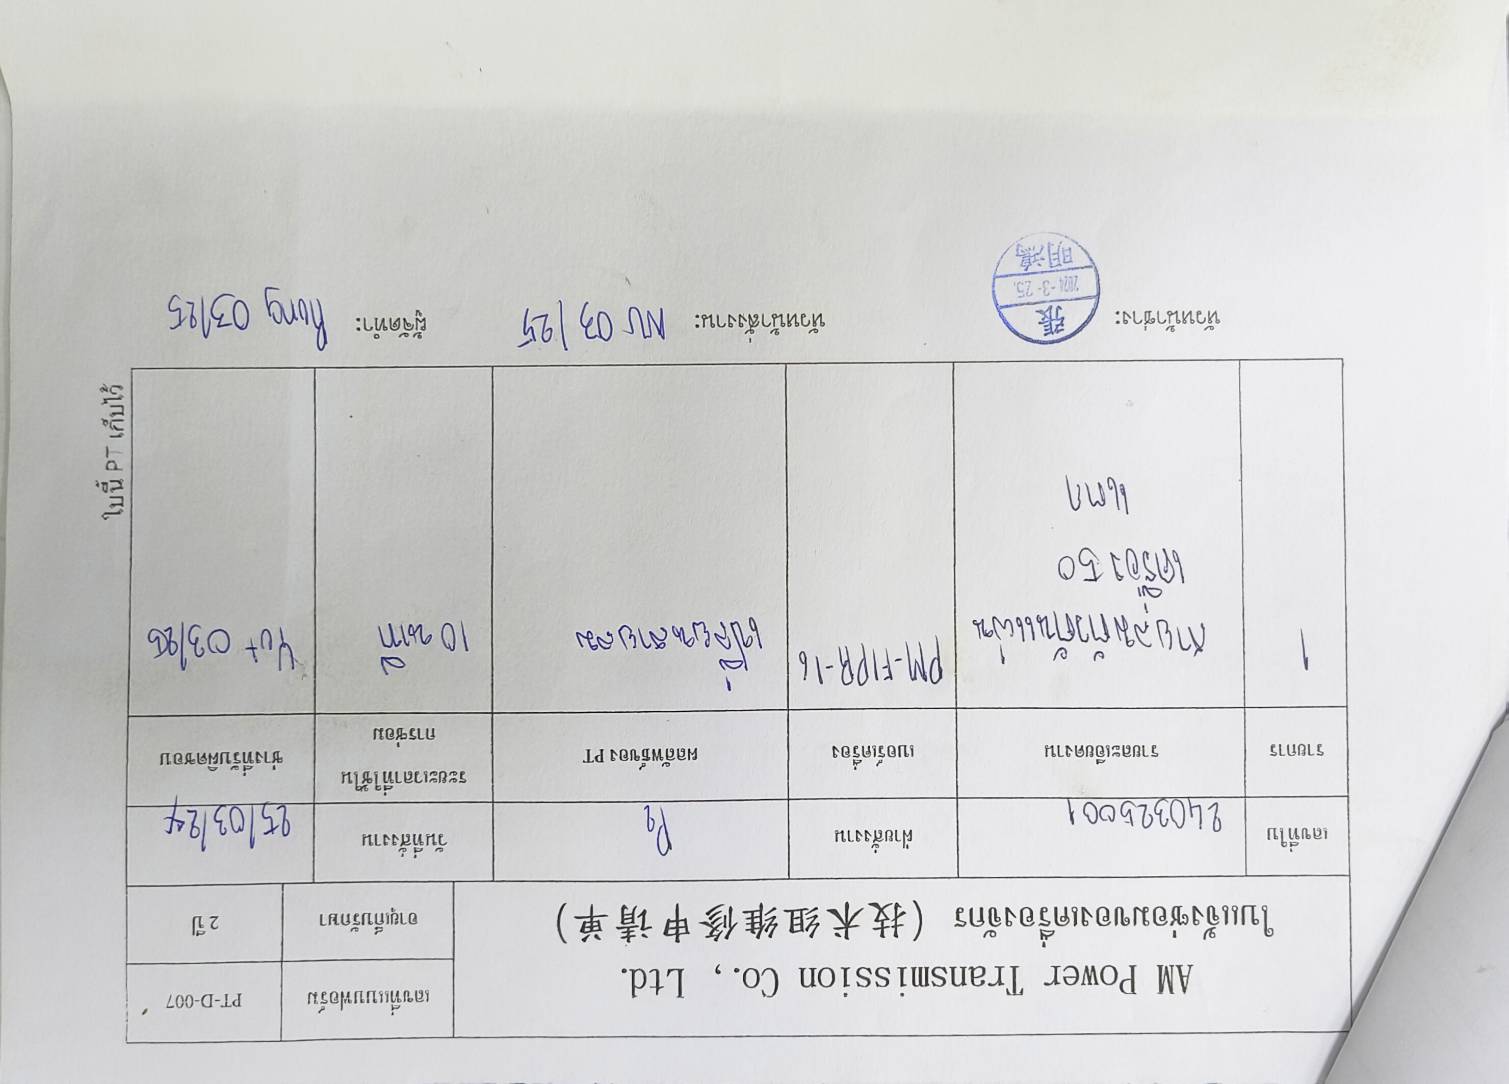 AM Power Transmission Co., Ltd.
ใบแจ้งซ่อมของเครื่องจักร (技术组维修申请单)
เลขที่แบบฟอร์ม PT-D-007
อายุเก็บรักษา 2 ปี
เลขที่ใบ 240325001 ฝ่ายสั่งงาน P2 วันที่สั่งงาน 25/03/24
รายการ รายละเอียดงาน เบอร์เครื่อง ผลลัพธ์ของ PT ระยะเวลาที่ใช้ใน
การซ่อม ช่างที่รับผิดชอบ
1 สายลมตัวดันแผ่น PM-FIPR-16 เปลี่ยนสายลม 10 นาที Yut 03/25
เครื่อง 50
แตก
ใบนี้ PT เก็บไว้
หัวหน้าช่าง: 張
2024-3-25.
明鴻
หัวหน้าสั่งงาน: NU 03/25 ผู้จัดทำ: Rung 03/25